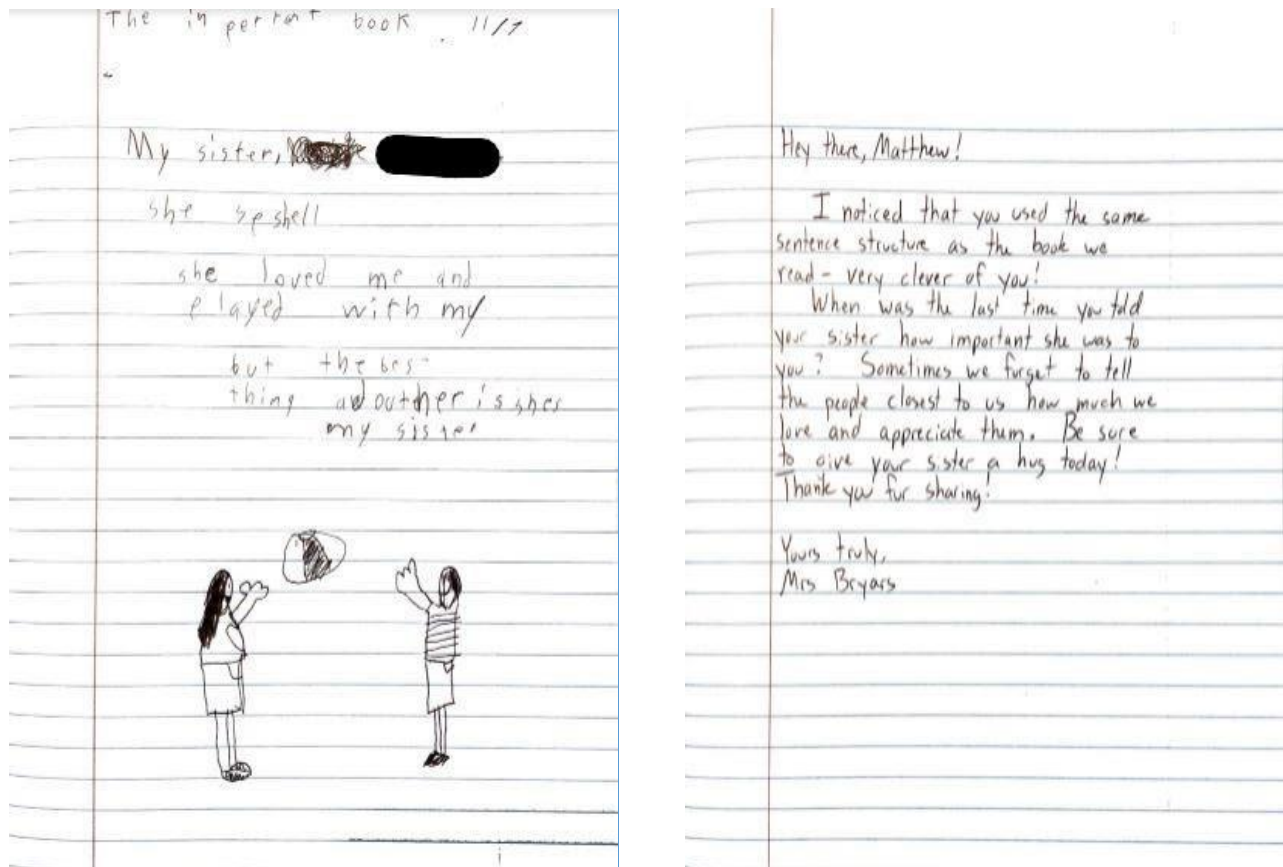 The in pertant book. 11/7
My sister,
she speshell
she loved me and
playyed with my
but the bes
thing adout her is shes
my sister
Hey there, Matthew!
I noticed that you used the same
sentence structure as the book we
read - very clever of you!
When was the last time you told
your sister how important she was to
you? Sometimes we forget to tell
the people closest to us how much we
love and appreciate them. Be sure
to give your sister a hug today!
Thank you for sharing!
Yours truly,
Mrs Bryars